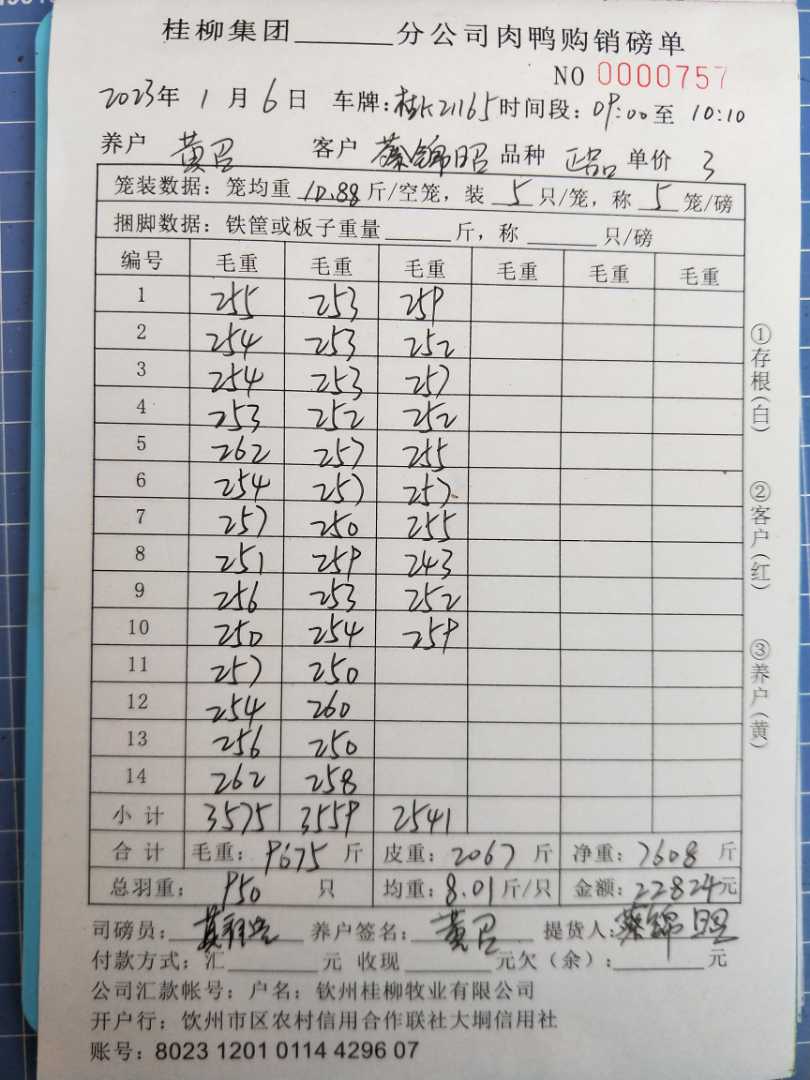 桂柳集团______分公司肉鸭购销磅单
NO 0000757
2023年 1 月 6 日 车牌:桂K21165 时间段: 09:00 至 10:10
养户 黄召 客户 蔡锦昭 品种 正品 单价 3
笼装数据: 笼均重 10.88 斤/空笼, 装 5 只/笼, 称 5 笼/磅
捆脚数据: 铁筐或板子重量______斤, 称______只/磅
编号 毛重 毛重 毛重 毛重 毛重 毛重
1 255 253 259
2 254 253 252
3 254 253 257
4 253 252 252
5 262 257 255
6 254 257 257
7 257 250 255
8 251 259 243
9 256 253 252
10 250 254 259
11 257 250
12 254 260
13 256 250
14 262 258
小计 3575 3559 2541
合计 毛重: 9675 斤 皮重: 2067 斤 净重: 7608 斤
总羽重: 950 只 均重: 8.01 斤/只 金额: 22824 元
司磅员: 养户签名: 黄召 提货人: 蔡锦昭
付款方式: 汇______元 收现______元欠(余): ______元
公司汇款帐号: 户名: 钦州桂柳牧业有限公司
开户行: 钦州市区农村信用合作联社大垌信用社
账号: 8023 1201 0114 4296 07
①存根(白) ②客户(红) ③养户(黄)